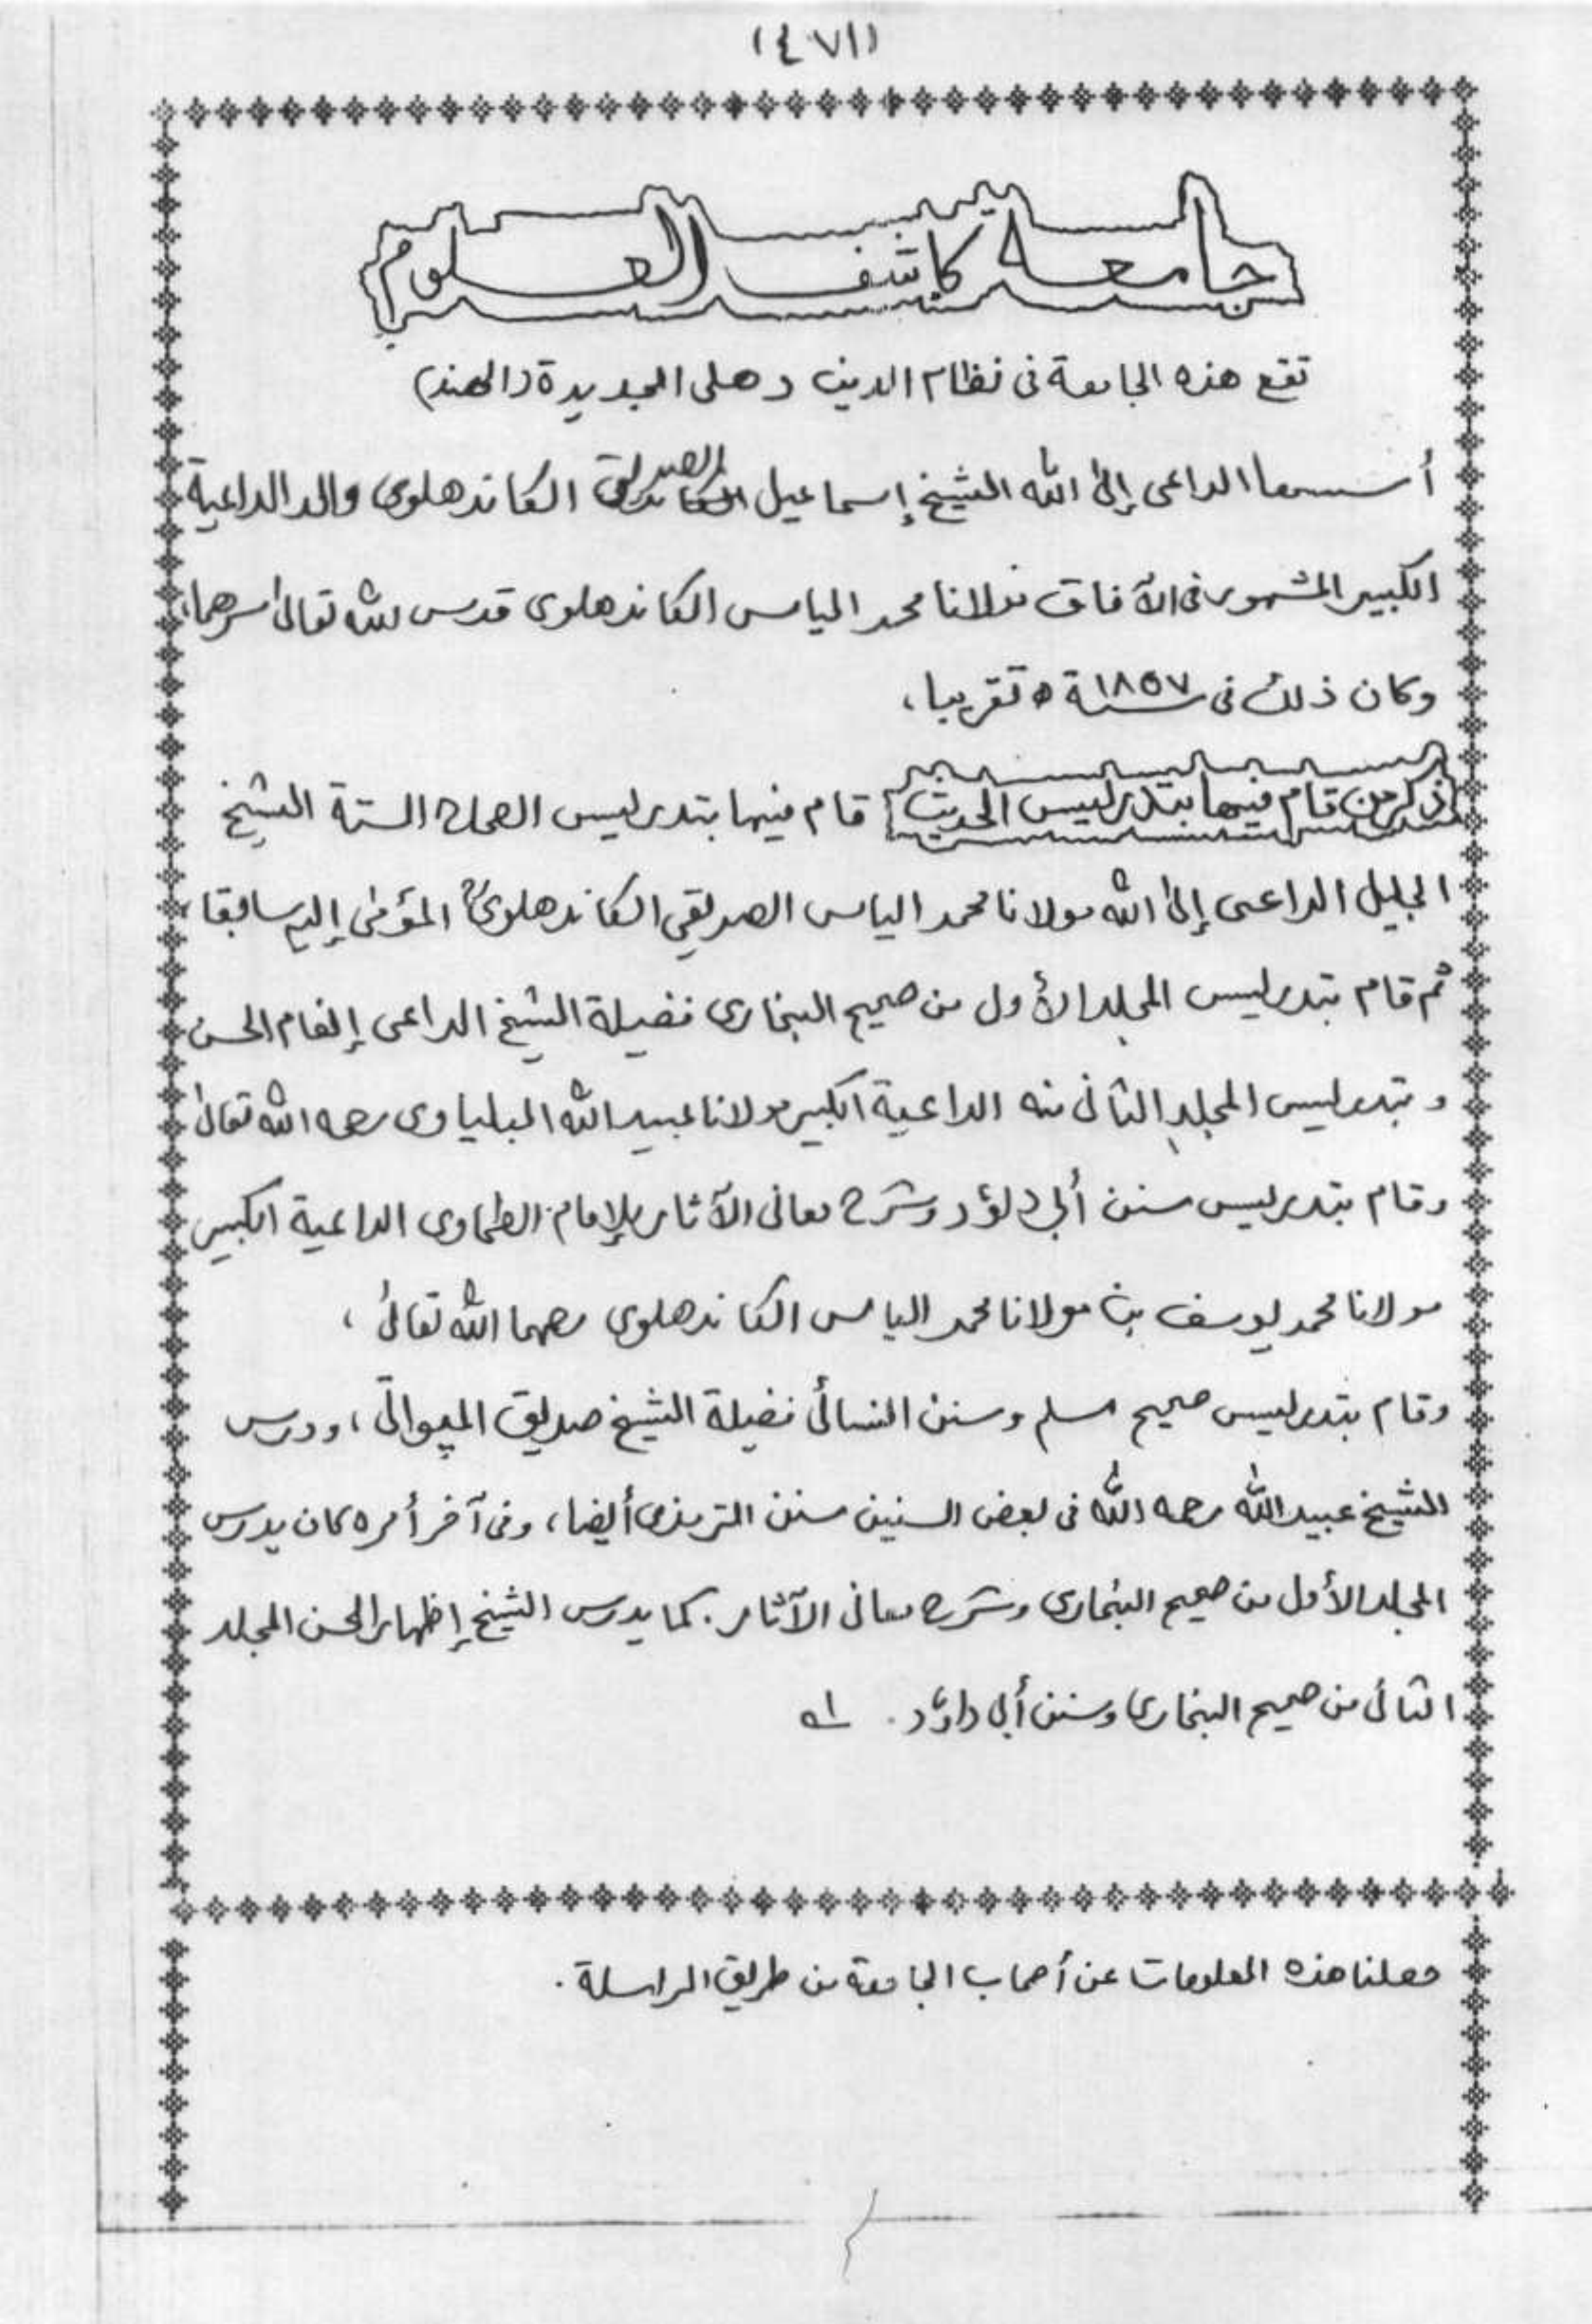 (٤٧١)
جامعة كاشف العلوم
تقع هذه الجامعة فى نظام الدين دهلى الجديدة (الهند)
أسسها الداعى إلى الله الشيخ إسماعيل الصديقى الكاندهلوى والد الداعية
الكبير المشهور فى الآفاق مولانا محمد الياس الكاندهلوى قدس الله تعالىٰ سرهما،
وكان ذلك فى سنة ١٨٥٧ ه تقريبا،
ذكر من قام فيها بتدريس الحديث قام فيها بتدريس الصحاح الستة الشيخ
الجليل الداعى إلى الله مولانا محمد الياس الصديقي الكاندهلوى المؤمى إليه سابقا،
ثم قام بتدريس المجلد الأول من صحيح البخارى فضيلة الشيخ الداعى إنعام الحسن
وبتدريس المجلد الثانى منه الداعية الكبير مولانا عبيد الله البلياوى رحمه الله تعالىٰ
وقام بتدريس سنن أبى داؤد وشرح معانى الآثار للإمام الطحاوى الداعية الكبير
مولانا محمد يوسف بن مولانا محمد الياس الكاندهلوى رحمهما الله تعالىٰ،
وقام بتدريس صحيح مسلم وسنن النسائى فضيلة الشيخ صديق الميواتى، ودرس
الشيخ عبيد الله رحمه الله فى بعض السنين سنن الترمذى أيضا، وفى آخر أمره كان يدرس
المجلد الأول من صحيح البخارى وشرح معانى الآثار. كما يدرس الشيخ إظهار الحسن المجلد
الثانى من صحيح البخارى وسنن أبى داؤد. اه
حصلنا هذه المعلومات عن أصحاب الجامعة من طريق المراسلة.